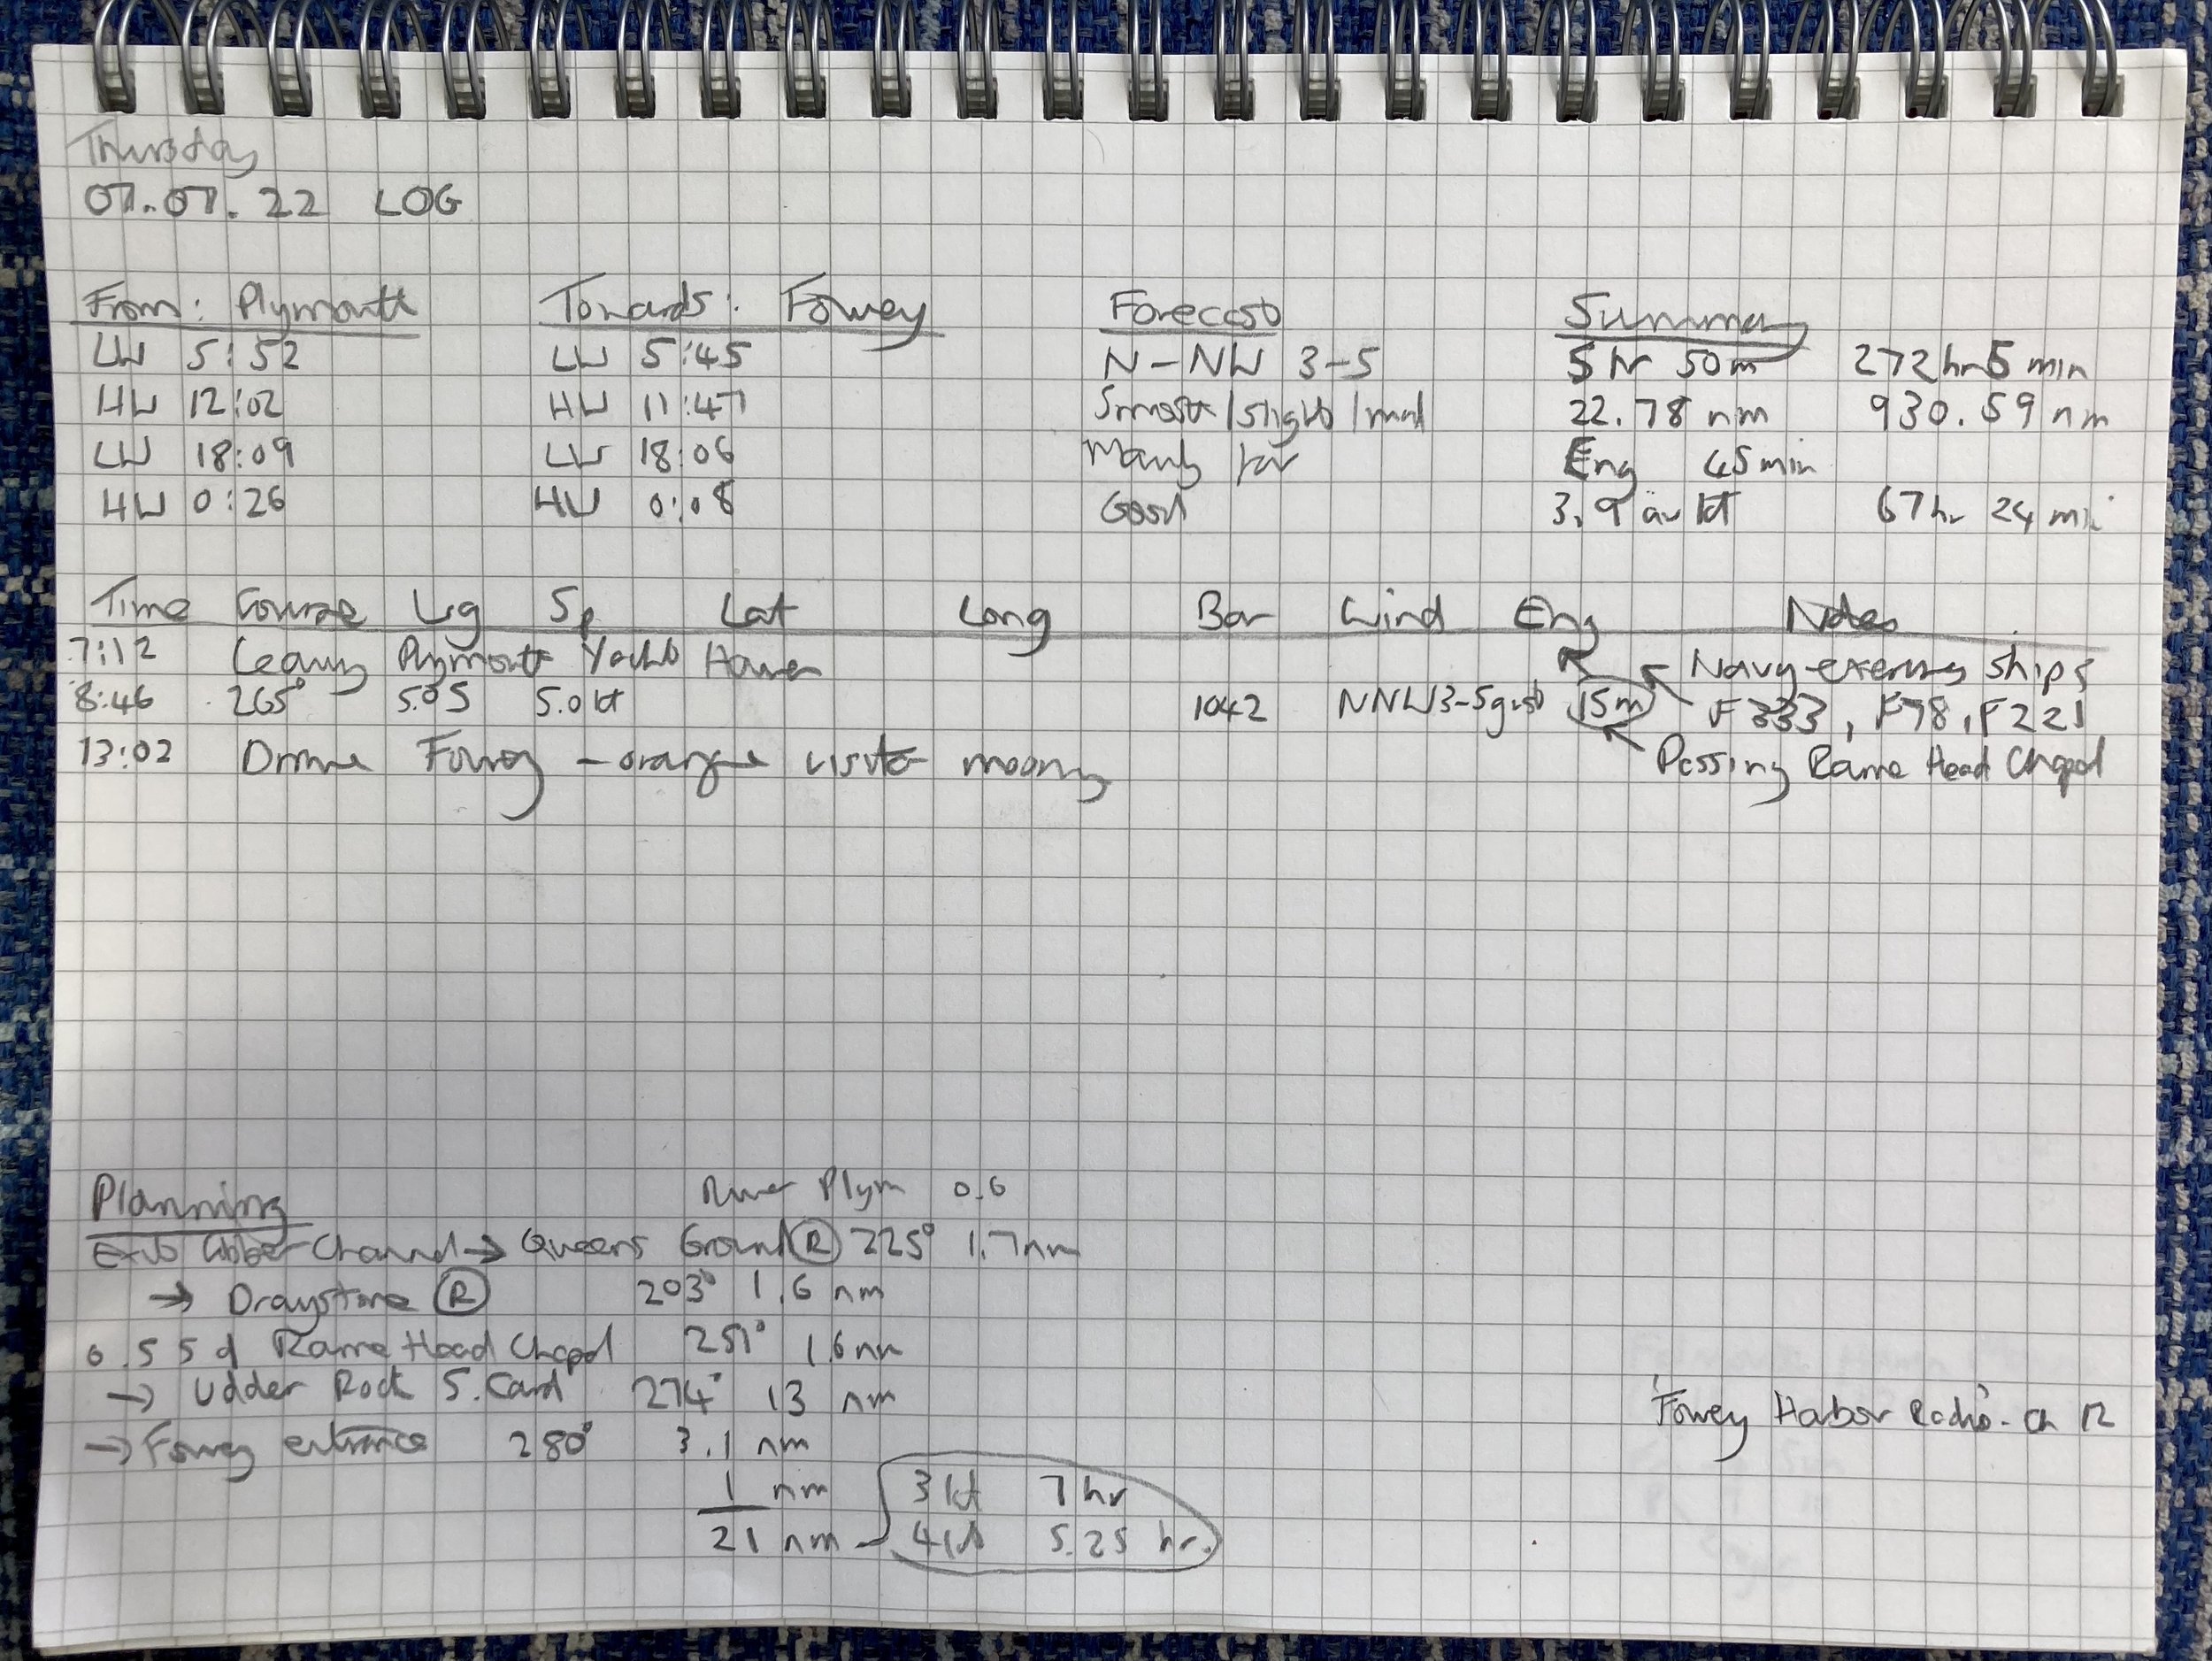 Thursday
07.07.22 LOG
From: Plymouth Towards: Fowey Forecast Summary
LW 5:52 LW 5:45 N-NW 3-5 5 hr 50m 272hr 5 min
HW 12:02 HW 11:47 Smooth/slight/mod 22.78 nm 930.59 nm
LW 18:09 LW 18:06 Mainly fair Eng 45min
HW 0:26 HW 0:08 Good 3.9 av kt 67hr 24 min
Time Course Log Sp Lat Long Bar Wind Eng Notes
7:12 Leaving Plymouth Yacht Haven Navy exercising ships
8:46 265° 5.05 5.0kt 1042 NNW3-5gust 15m F333, F78, F221
13:02 Fowey - orange visitor mooring Passing Rame Head Chapel
Planning River Plym 0.6
Exit Cobbler Channel → Queens Ground Ⓡ 225° 1.7nm
→ Draystone Ⓡ 203° 1.6 nm
0.5 S of Rame Head Chapel 251° 1.6nm
→ Udder Rock S.Card 274° 13 nm
→ Fowey entrance 280° 3.1 nm
1 nm 3kt 7hr
21 nm 4kt 5.25 hr.
'Fowey Harbor Radio' - Ch 12